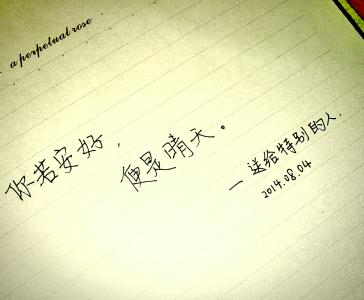 a perpetual rose
你若安好，
便是晴天。
— 送给特别的人.
2014.08.04